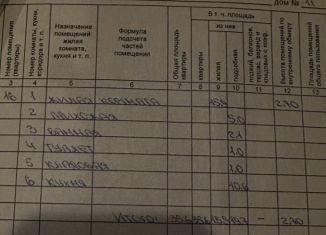 дом № 11
Номер помещения (квартиры)
Номер комнаты, кухни, коридора и т. п.
Назначение помещений жилая комната, кухня и т. п.
Формула подсчета частей помещения
Общая площадь квартиры
В т. ч. площадь
из нее
квартиры
жилая
подсобная
лоджий, балконов, террас, веранд и
Высота помещений по внутреннему обмеру
Площадь помещений общего пользования
3 4 5 6 7 8 9 10 11 12 13
16 1 ЖИЛАЯ КОМНАТА 15,9 2.70
2 ПРИХОЖАЯ 5.0
3 ВАННАЯ 2.1
4 ТУАЛЕТ 1.0
5 КЛАДОВАЯ 1.0
6 КУХНЯ 10.6
ИТОГО: 35,6 35,6 15,9 19,7 — 2.70